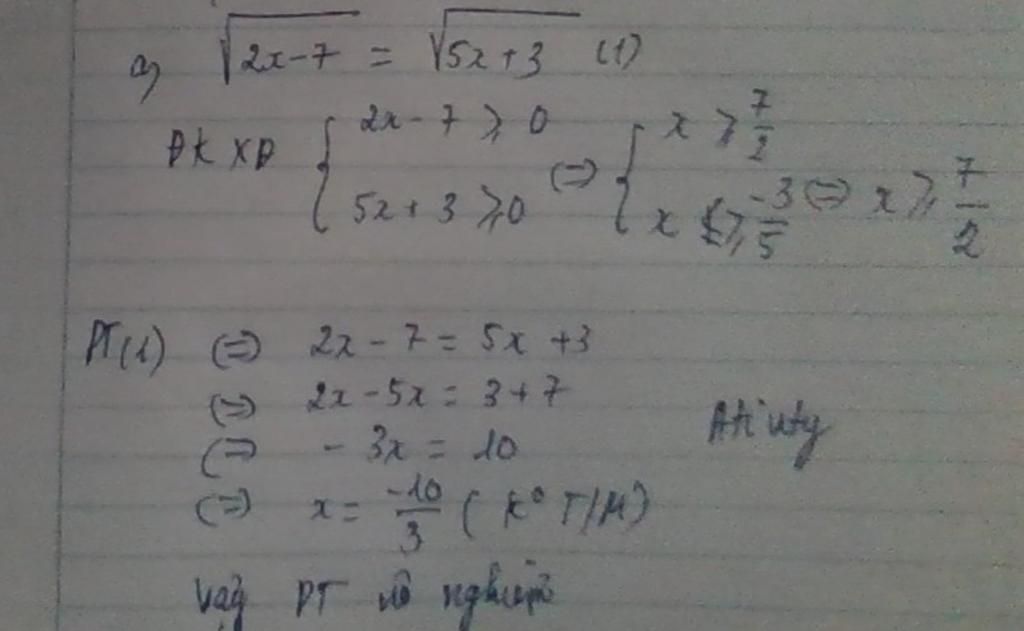 a, √2x-7 = √5x+3 (1)
ĐKXĐ { 2x-7 ⩾ 0 (=) { x ⩾ 7/2
5x+3 ⩾ 0 x ⩾ -3/5 (=) x ⩾ 7/2
PT(1) (=) 2x-7 = 5x+3
(=) 2x-5x = 3+7
(=) -3x = 10
(=) x = -10/3 (k° T/M)
Vậy PT vô nghiệm